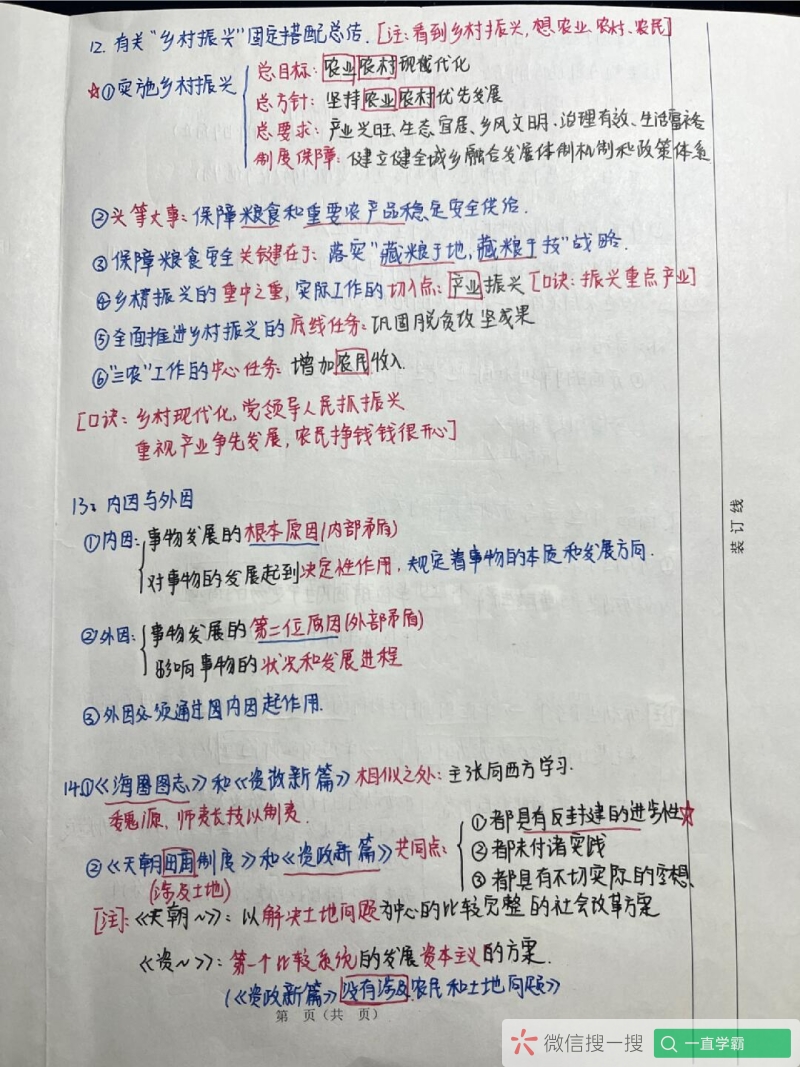 12. 有关“乡村振兴”固定搭配总结. [注:看到乡村振兴,想农业、农村、农民]
☆①实施乡村振兴
总目标: 农业农村现代化
总方针: 坚持农业农村优先发展
总要求: 产业兴旺、生态宜居、乡风文明、治理有效、生活富裕
制度保障: 建立健全城乡融合发展体制机制和政策体系
②头等大事: 保障粮食和重要农产品稳定安全供给.
③保障粮食安全关键在于: 落实“藏粮于地,藏粮于技”战略.
④乡村振兴的重中之重,实际工作的切入点: 产业振兴 [口诀: 振兴重点产业]
⑤全面推进乡村振兴的底线任务: 巩固脱贫攻坚成果
⑥“三农”工作的中心任务: 增加农民收入.
[口诀: 乡村现代化,党领导人民抓振兴
重视产业争先发展,农民挣钱钱很开心]
13、内因与外因
①内因:
事物发展的根本原因(内部矛盾)
对事物的发展起到决定性作用,规定着事物的本质和发展方向.
②外因:
事物发展的第二位原因(外部矛盾)
影响事物的状况和发展进程
③外因必须通过内因起作用.
14.①《海国图志》和《资政新篇》相似之处: 主张向西方学习.
魏源、师夷长技以制夷.
②《天朝田亩制度》和《资政新篇》共同点:
(涉及土地)
①都具有反封建的进步性☆
②都未付诸实践
③都具有不切实际的空想.
[注]:《天朝~》: 以解决土地问题为中心的比较完整的社会改革方案
《资~》: 第一个比较系统的发展资本主义的方案.
(《资政新篇》没有涉及农民和土地问题)
第 页(共 页)
装订线
微信搜一搜 一直学霸